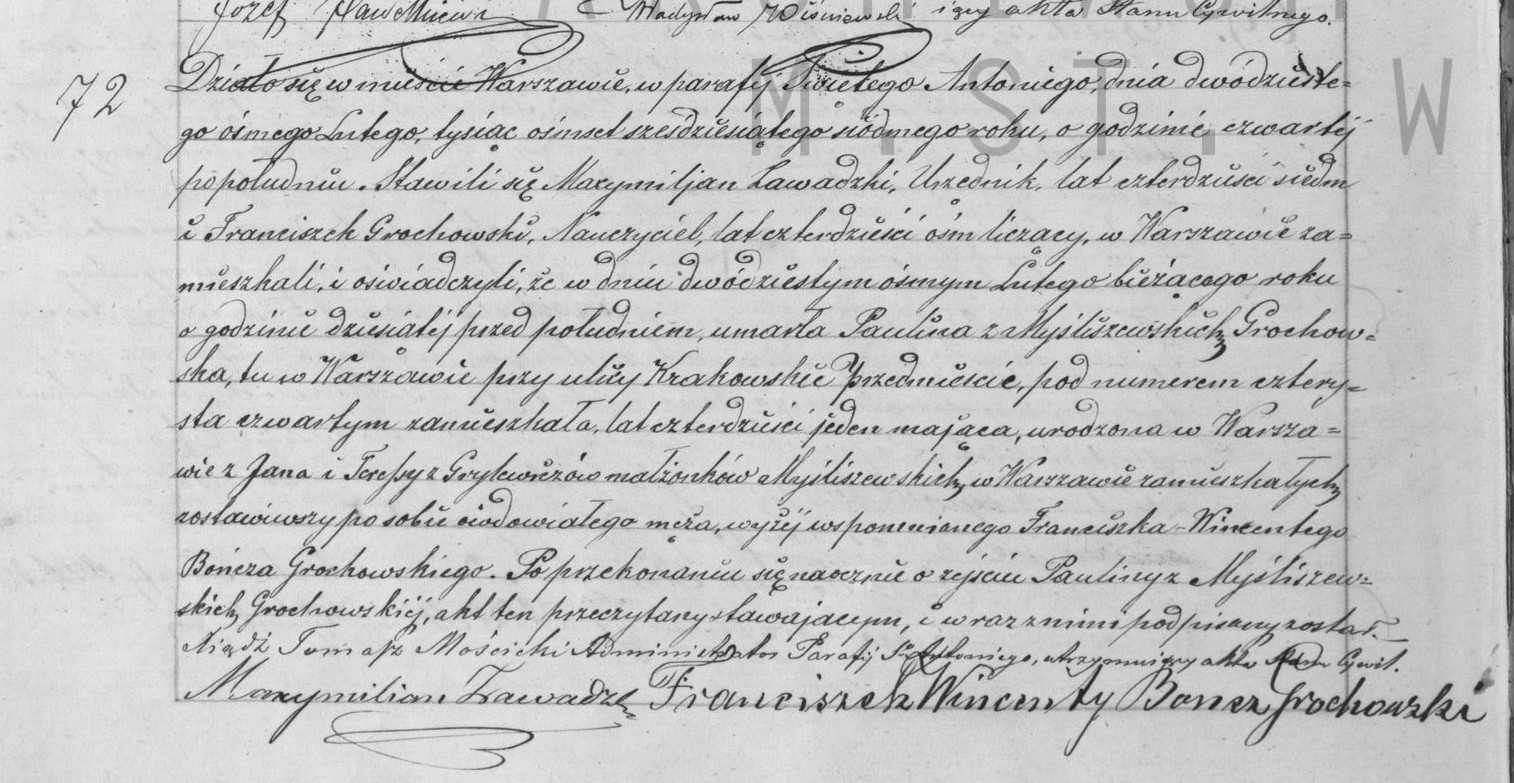 Józef Władysław Wiśniewski akta Stanu Cywilnego.
72
Działo się w mieście Warszawie, w parafij Swiętego Antoniego, dnia dwódzieste=
go ósmego Lutego, tysiąc ośmset szesdziesiątego siódmego roku, o godzinie czwartéj
popołudniu. Stawili się Maxymiljan Zawadzki, Urzędnik, lat czterdzieści siedm
i Franciszek Grochowski, Nauczyciel, lat czterdzieści ośm liczący, w Warszawie za=
mieszkali, i oświadczyli, że w dniu dwódziestym ósmym Lutego bieżącego roku
o godzinie dziesiątéj przed południem, umarła Paulina z Myśliszewskich Grochow=
ska, tu w Warszawie przy ulicy Krakowskie Przedmieście, pod numerem cztery=
sta czwartym zamieszkała, lat czterdzieści jeden mająca, urodzona w Warsza=
wie z Jana i Teressy z Grylewiczów małżonków Myśliszewskich, w Warszawie zamieszkałych,
zostawiwszy po sobie owdowiałego męża, wyżéj wspomnionego Franciszka Wincentego
Bończa Grochowskiego. Po przekonaniu się naocznie o zejściu Pauliny z Myśliszew=
skich Grochowskiéj, akt ten przeczytany stawającym, i wraz z nimi podpisany został.
Xiądz Tomasz Mościcki Administrator Parafij Sgo Antoniego, utrzymujący akta Stanu Cywil.
Maxymilian Zawadzki Franciszek Wincenty Boncza Grochowski
M . S T . W